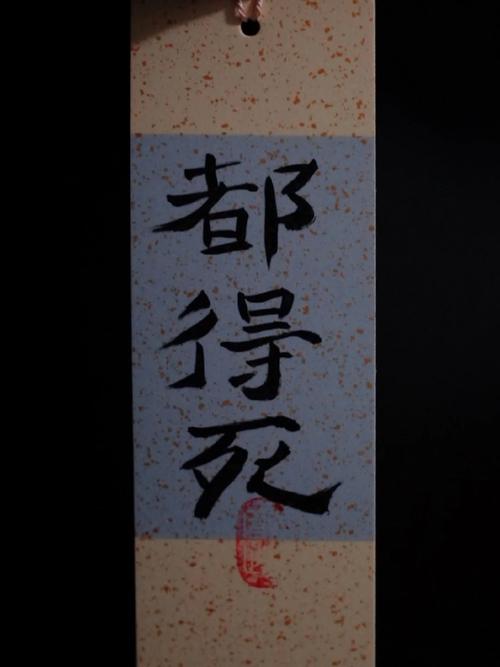 都得死